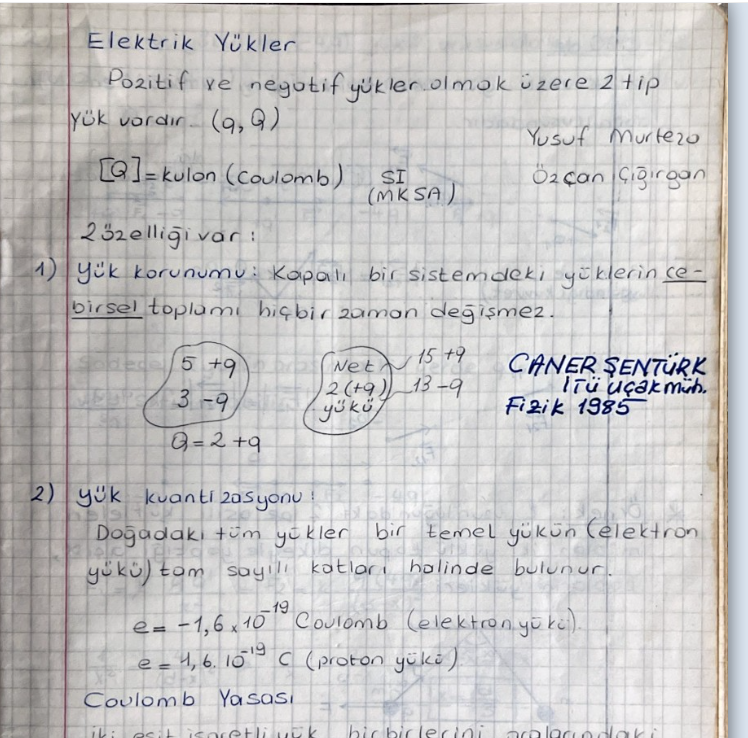 Elektrik Yükler
Pozitif ve negatif yükler olmak üzere 2 tip
yük vardır. (q, Q)
Yusuf Murteza
[Q]=kulon (coulomb) SI
(MKSA)
Özcan Çığırgan
2 özelliği var:
1) Yük korunumu: Kapalı bir sistemdeki yüklerin ce-
birsel toplamı hiçbir zaman değişmez.
5 +q
3 -q
Q = 2 +q
Net
2 (+q)
yükü
15 +q
13 -q
CANER ŞENTÜRK
İTÜ Uçak müh.
Fizik 1985
2) Yük kuantizasyonu:
Doğadaki tüm yükler bir temel yükün (elektron
yükü) tam sayılı katları halinde bulunur.
e = -1,6 x 10⁻¹⁹ Coulomb (elektron yükü).
e = 1,6. 10⁻¹⁹ C (proton yükü)
Coulomb Yasası
iki eşit işaretli yük birbirlerini aralarındaki